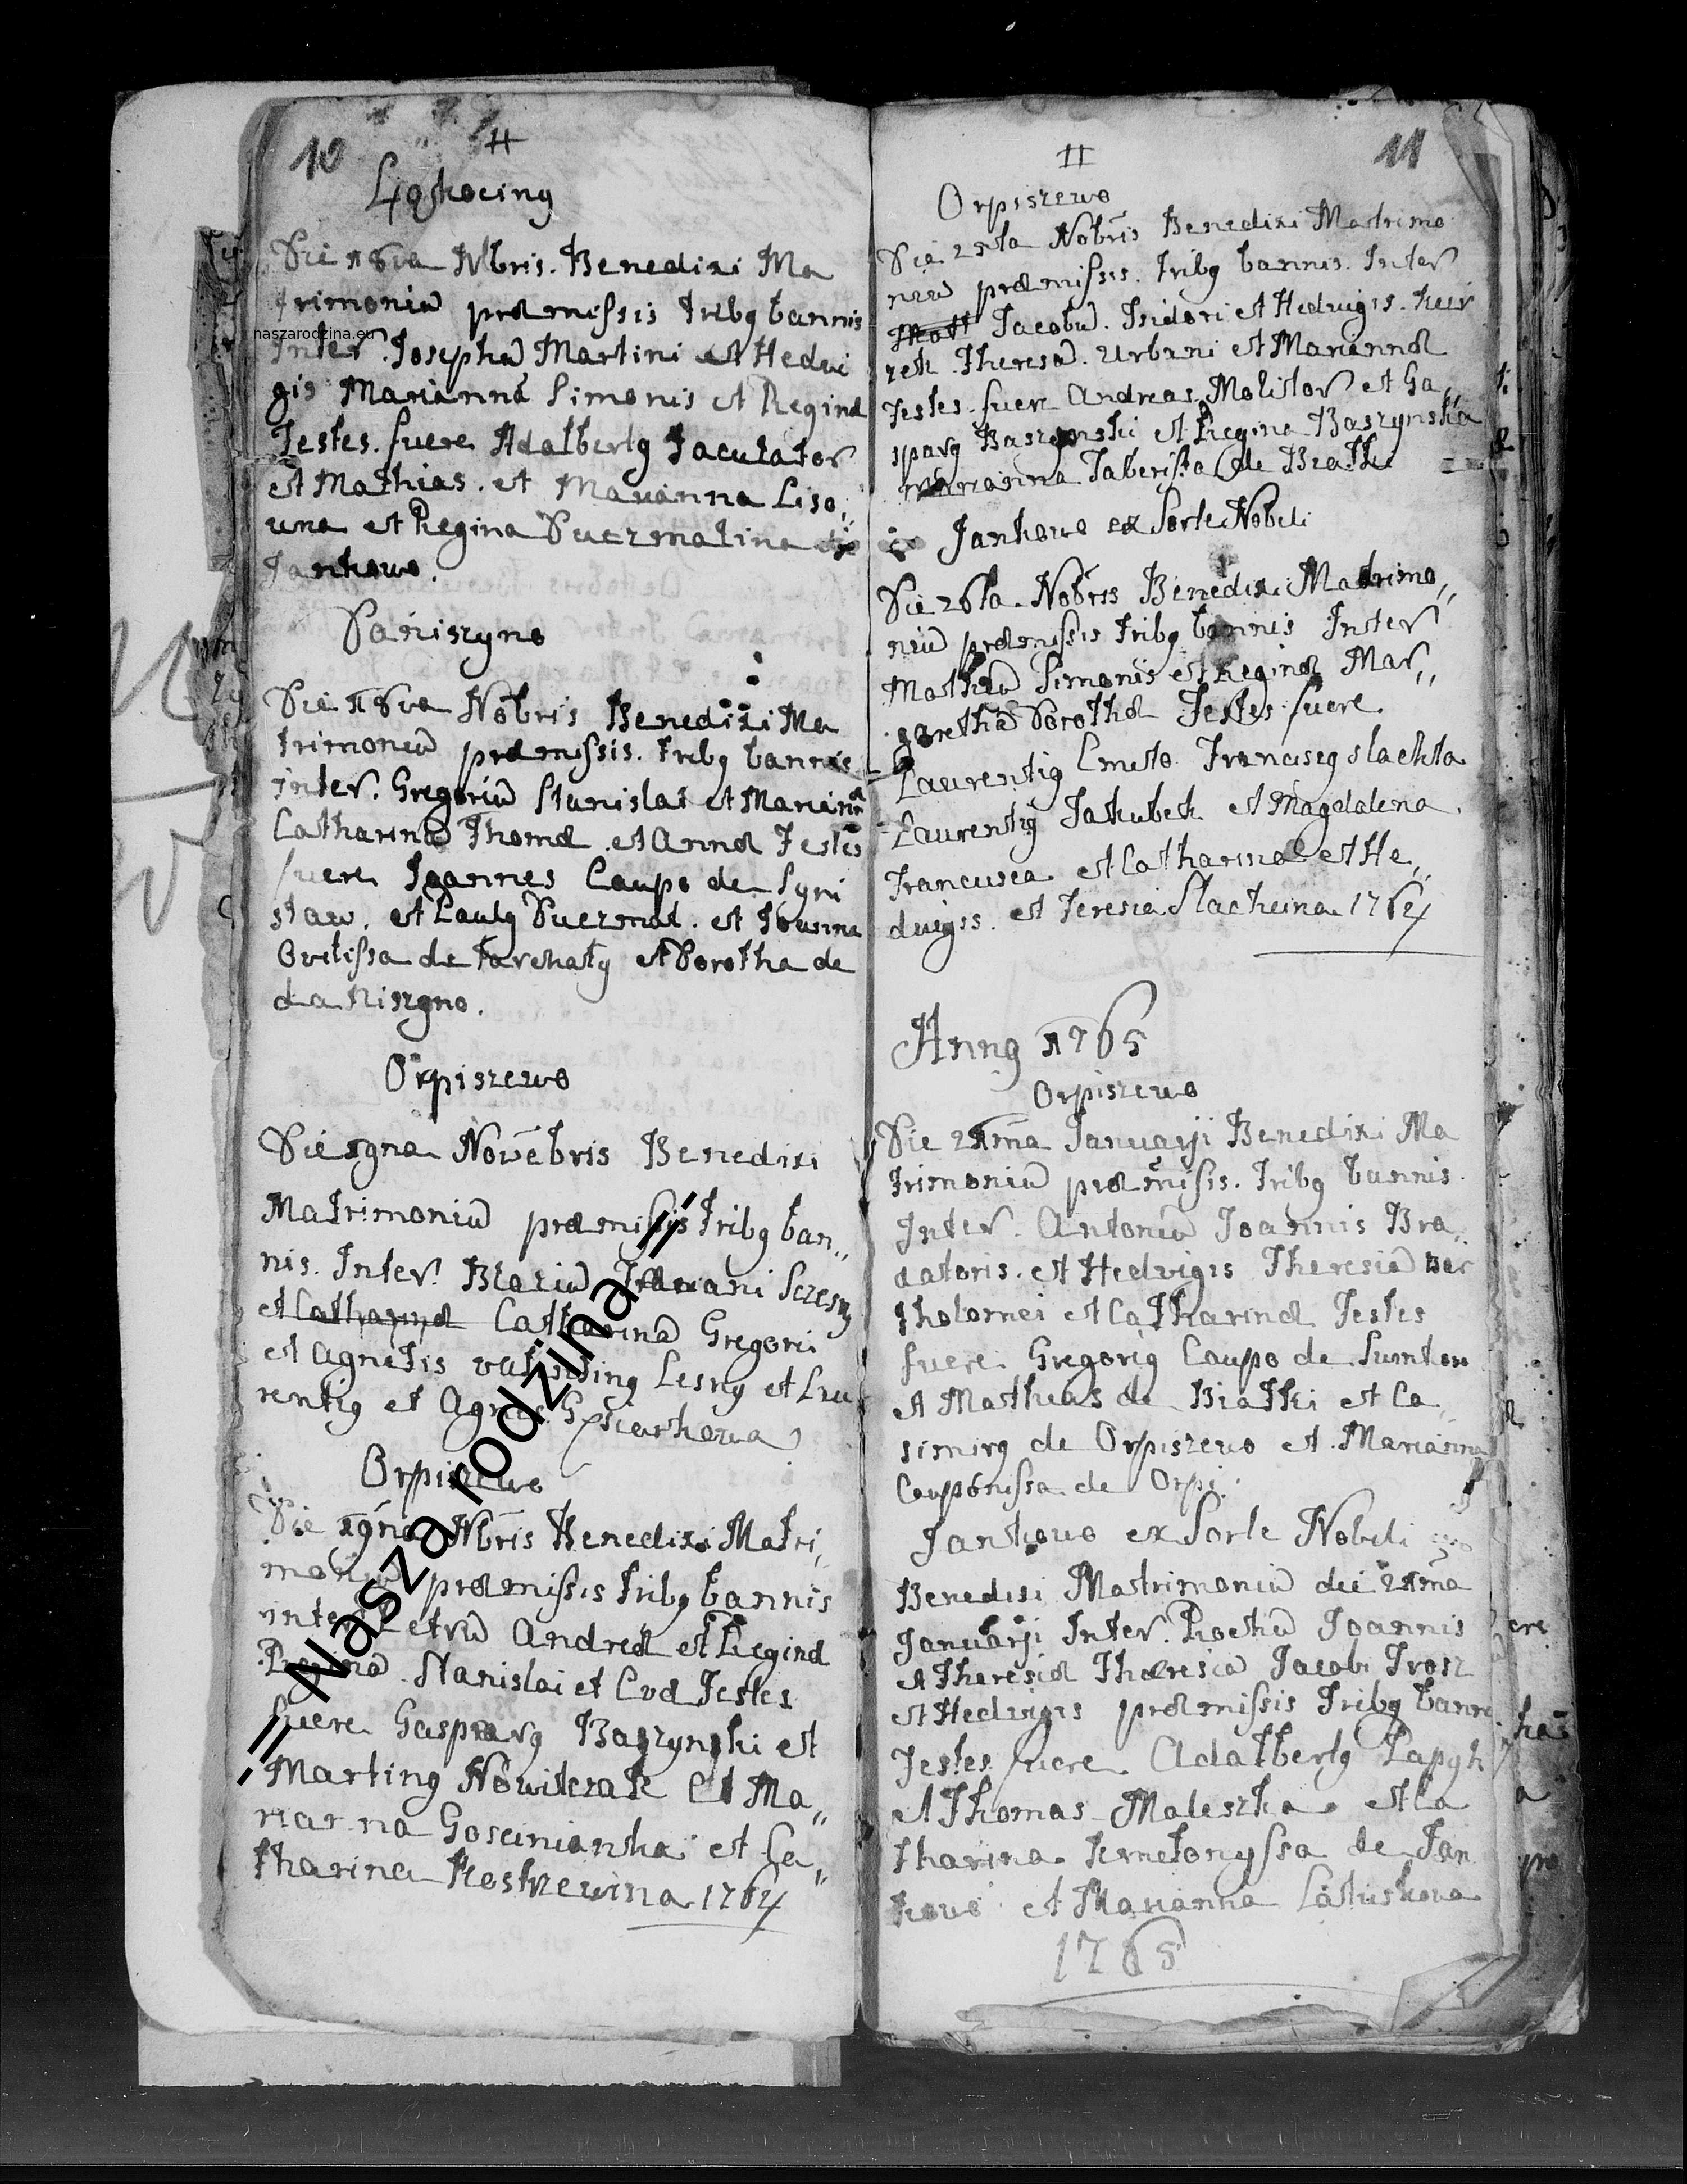 10
H
Ligthocing
Die 18va Nbris. Benedixi Ma
trimoniū præmissis tribq bannis
naszarodzina.eu
Inter. Josephū Martini et Hedvi
gis Mariannā Simonis et Reginæ
Testes. fuere Adalbertq Jaculator
et Mathias. et Marianna Liso,,
wna et Regina Duczmalina
Jankowo.
Daniszyno
Die 18va Nobris Benedixi Ma
trimoniū præmissis. tribq bannis
inter. Gregoriū Stanislai et Mariannæ
Catharinā Thomæ et Annæ Testes
fuere Joannes Caupo de Syni
staw. et Paulq Duczmal. et Iousina
Ovilissa de Tarchaly et Dorotha de
daniszyno.
Orpiszewo
Die 19na Novēbris Benedixi
Matrimoniū præmissis tribq ban,,
nis. Inter. Blaziū Szczesny
et Catharinæ Catharinā Gregorii
et Agnetis Lesny et Lau
rentiq et Agnes
Orpiszewo
Die 19na Nbris Benedixi Matri,,
moniū præmissis tribq bannis
inter Petrū Andreæ et Reginæ
Reginā. Stanislai et Evæ Testes
fuere Gasparq Baszynski et
Martinq Nowiczak et Ma,,
rianna Goscinianka et Ca,,
tharina 1764
Nasza rodzina
11
II
Orpiszewo
Die 25ta Nobris Benedixi Matrimo
niū præmissis. tribq bannis. Inter
Jacobū. Isidori et Hedvigis. Kur
zek. Theresā. Urbani et Mariannæ
Testes. fuere Andreas Molitor et Ga,,
sparq Baszynski et Regina Baszynska
Marianna Taberista de Biatki
Jankowo ex Sorte Nobili
Die 26ta. Nobris Benedixi Matrimo,,
niū præmissis tribq bannis Inter
Mathiū Simonis et Reginæ Mar,,
garethā Dorothæ Testes fuere
Laurentiq Cmeto Franciscq slachta
Laurentiq Jakubek et Magdalena
Francisca et Catharina et He,,
duigis. et Teresia Slachcina 1764
Annq 1765
Orpiszewo
Die 21ma Januarji Benedixi Ma
trimoniū præmissis. tribq bannis
Inter. Antoniū Joannis Bra,,
datoris. et Hedvigis Theresiā Bar
tholomei et Catharinæ Testes
fuere Gregoriq Caupo de
et Mathias de Biatki et Ca,,
simirq de Orpiszewo et Marianna
Cauponissa de Orpi.
Jankowo ex Sorte Nobili
Benedixi Matrimoniū die 21ma
Januarji Inter. Rochū Joannis
et Theresiæ Theresiā Jacobi Trosz
et Hedvigis præmissis tribq banni
Testes fuere Adalbertq Papyk
et Thomas Maleszka et Ca
tharina de Jan
kowo et Marianna
1765